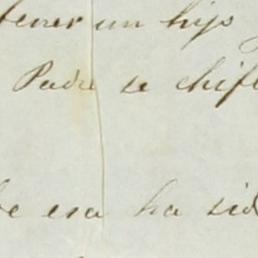 tener un hijo
Padre se chifl
be esa ha sid